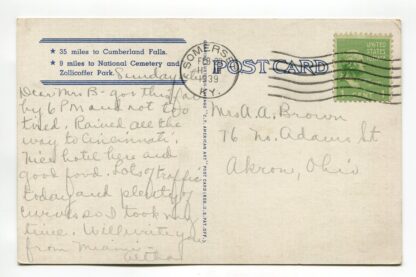 ★ 35 miles to Cumberland Falls.
★ 9 miles to National Cemetery and
Zollicoffer Park.
Sunday
Dear Mrs B - got this far
by 6 PM and not too
tired. Rained all the
way to Cincinnati.
Nice hotel here and
good food. Lots of traffic
today and plenty of
curves so I took my
time. Will write you
from Miami -
SOMERSET
FEB
1939
KY.
POST CARD
Mrs A. A. Brown
76 No. Adams St
Akron, Ohio